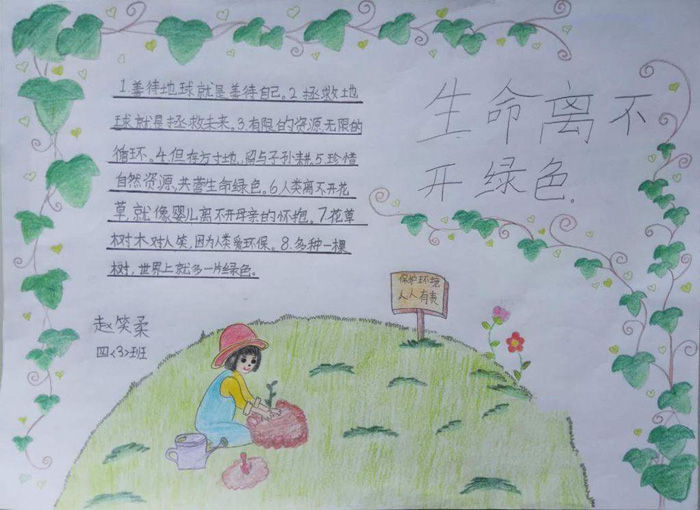 生命离不
开绿色.
1.善待地球就是善待自己。2.拯救地
球就是拯救未来。3.有限的资源,无限的
循环。4.但存方寸地,留与子孙耕.5.珍惜
自然资源,共营生命绿色。6.人类离不开花
草,就像婴儿离不开母亲的怀抱。7.花草
树木对人笑,因为人类爱环保。8.多种一棵
树,世界上就多一片绿色。
赵笑柔
四<3>班
保护环境
人人有责